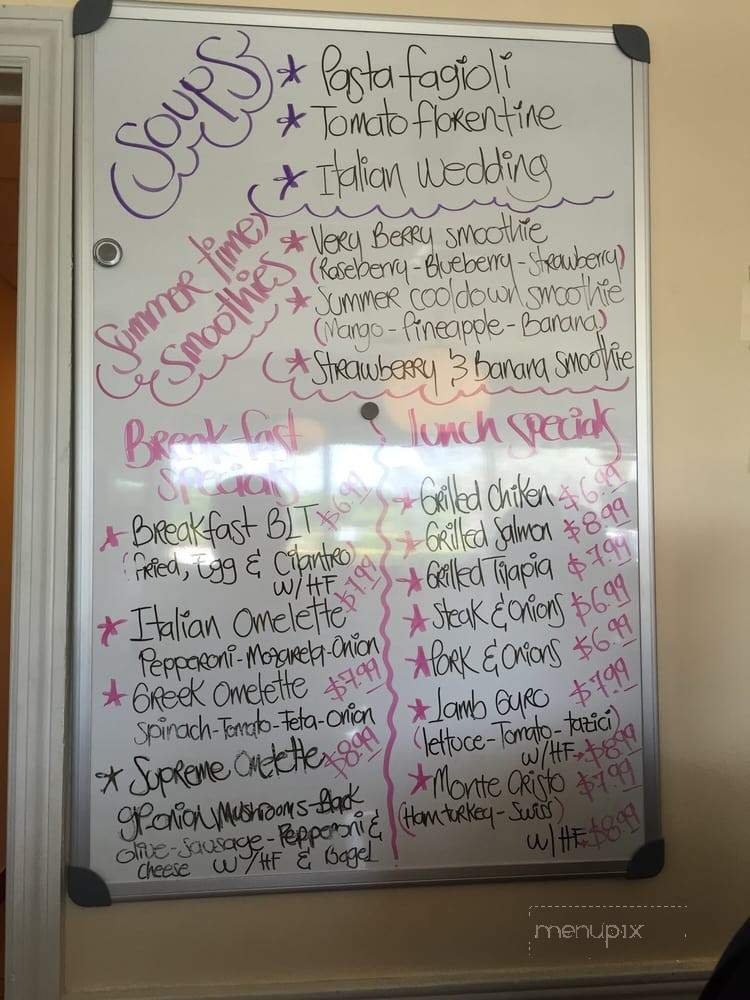 Soups
* Pasta fagioli
* Tomato florentine
* Italian wedding
Summer time
Smoothies
* Very Berry smoothie
(Raseberry-Blueberry-Strawberry)
* Summer cooldown smoothie
(Mango-Pineapple-Banana)
* Strawberry & Banana Smoothie
Breakfast
specials
* Breakfast BLT $6.99
(fried, Egg & Cilantro)
w/HF
* Italian Omelette $7.99
Pepperoni-Mozarela-Onion
* Greek Omelette $7.99
Spinach-Tomato-Feta-Onion
* Supreme Omelette $8.99
Onion Mushrooms-Black
olive-sausage-Pepperoni &
cheese w/HF & Bagel
lunch specials
* Grilled Chiken $6.99
* Grilled Salmon $8.99
* Grilled Tilapia $7.99
* Steak & Onions $6.99
* Pork & Onions $6.99
* Lamb Gyro $7.99
(lettuce-Tomato-tazici)
w/HF $8.99
* Monte Cristo $7.99
(Ham turkey-Swiss)
w/HF $8.99
menupix